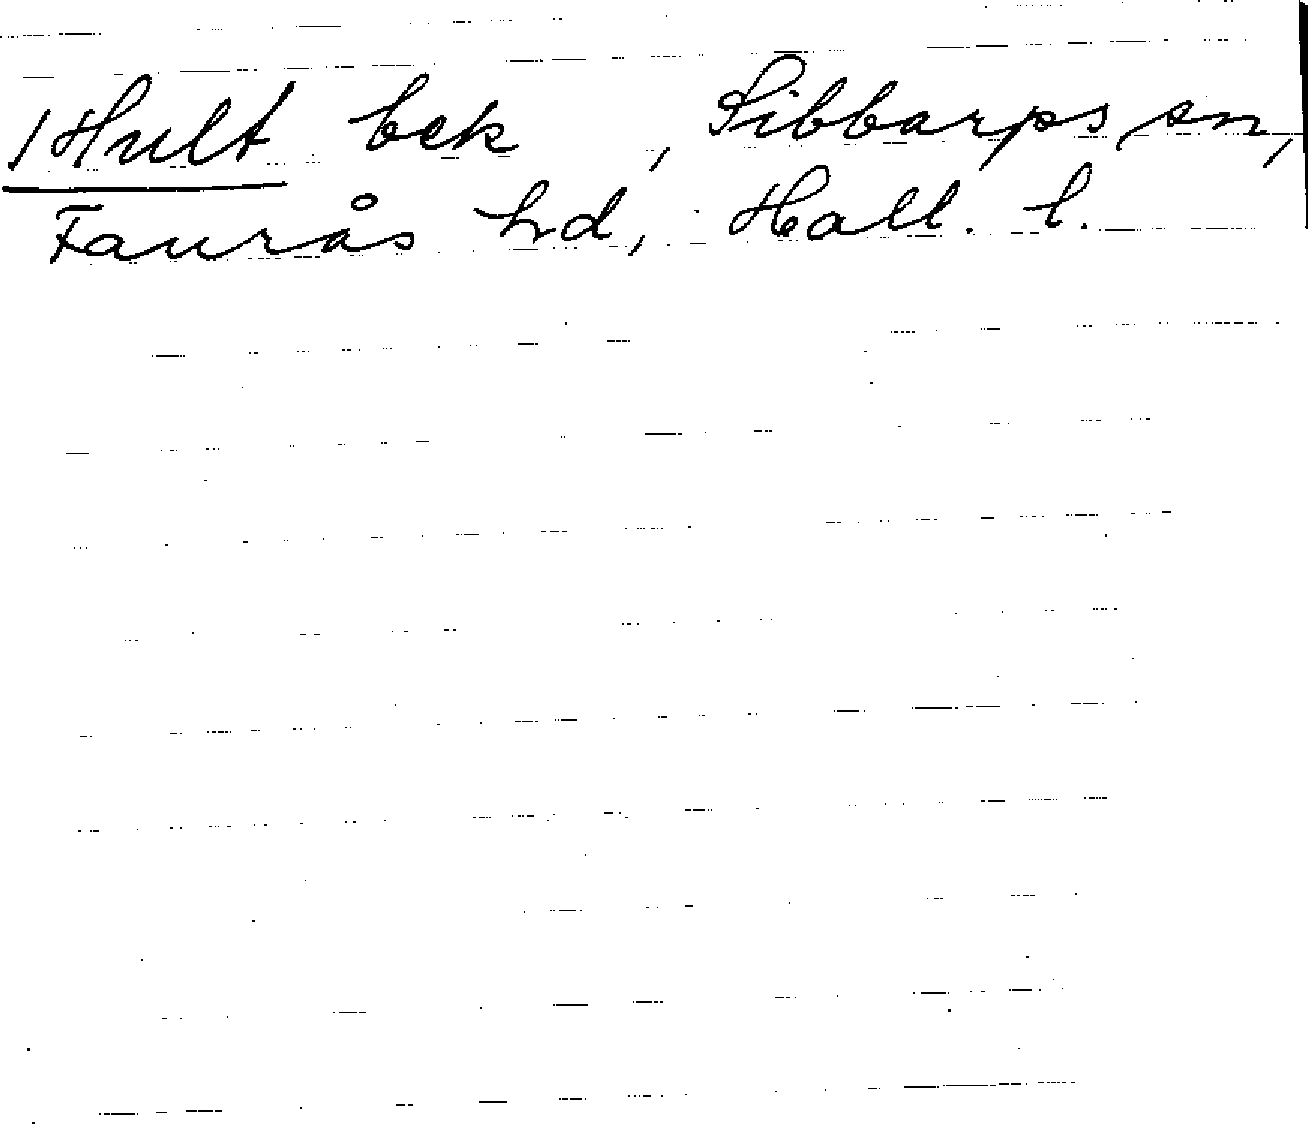 /Hult bek , Sibbarps sn,
Faurås hd, Hall. l.